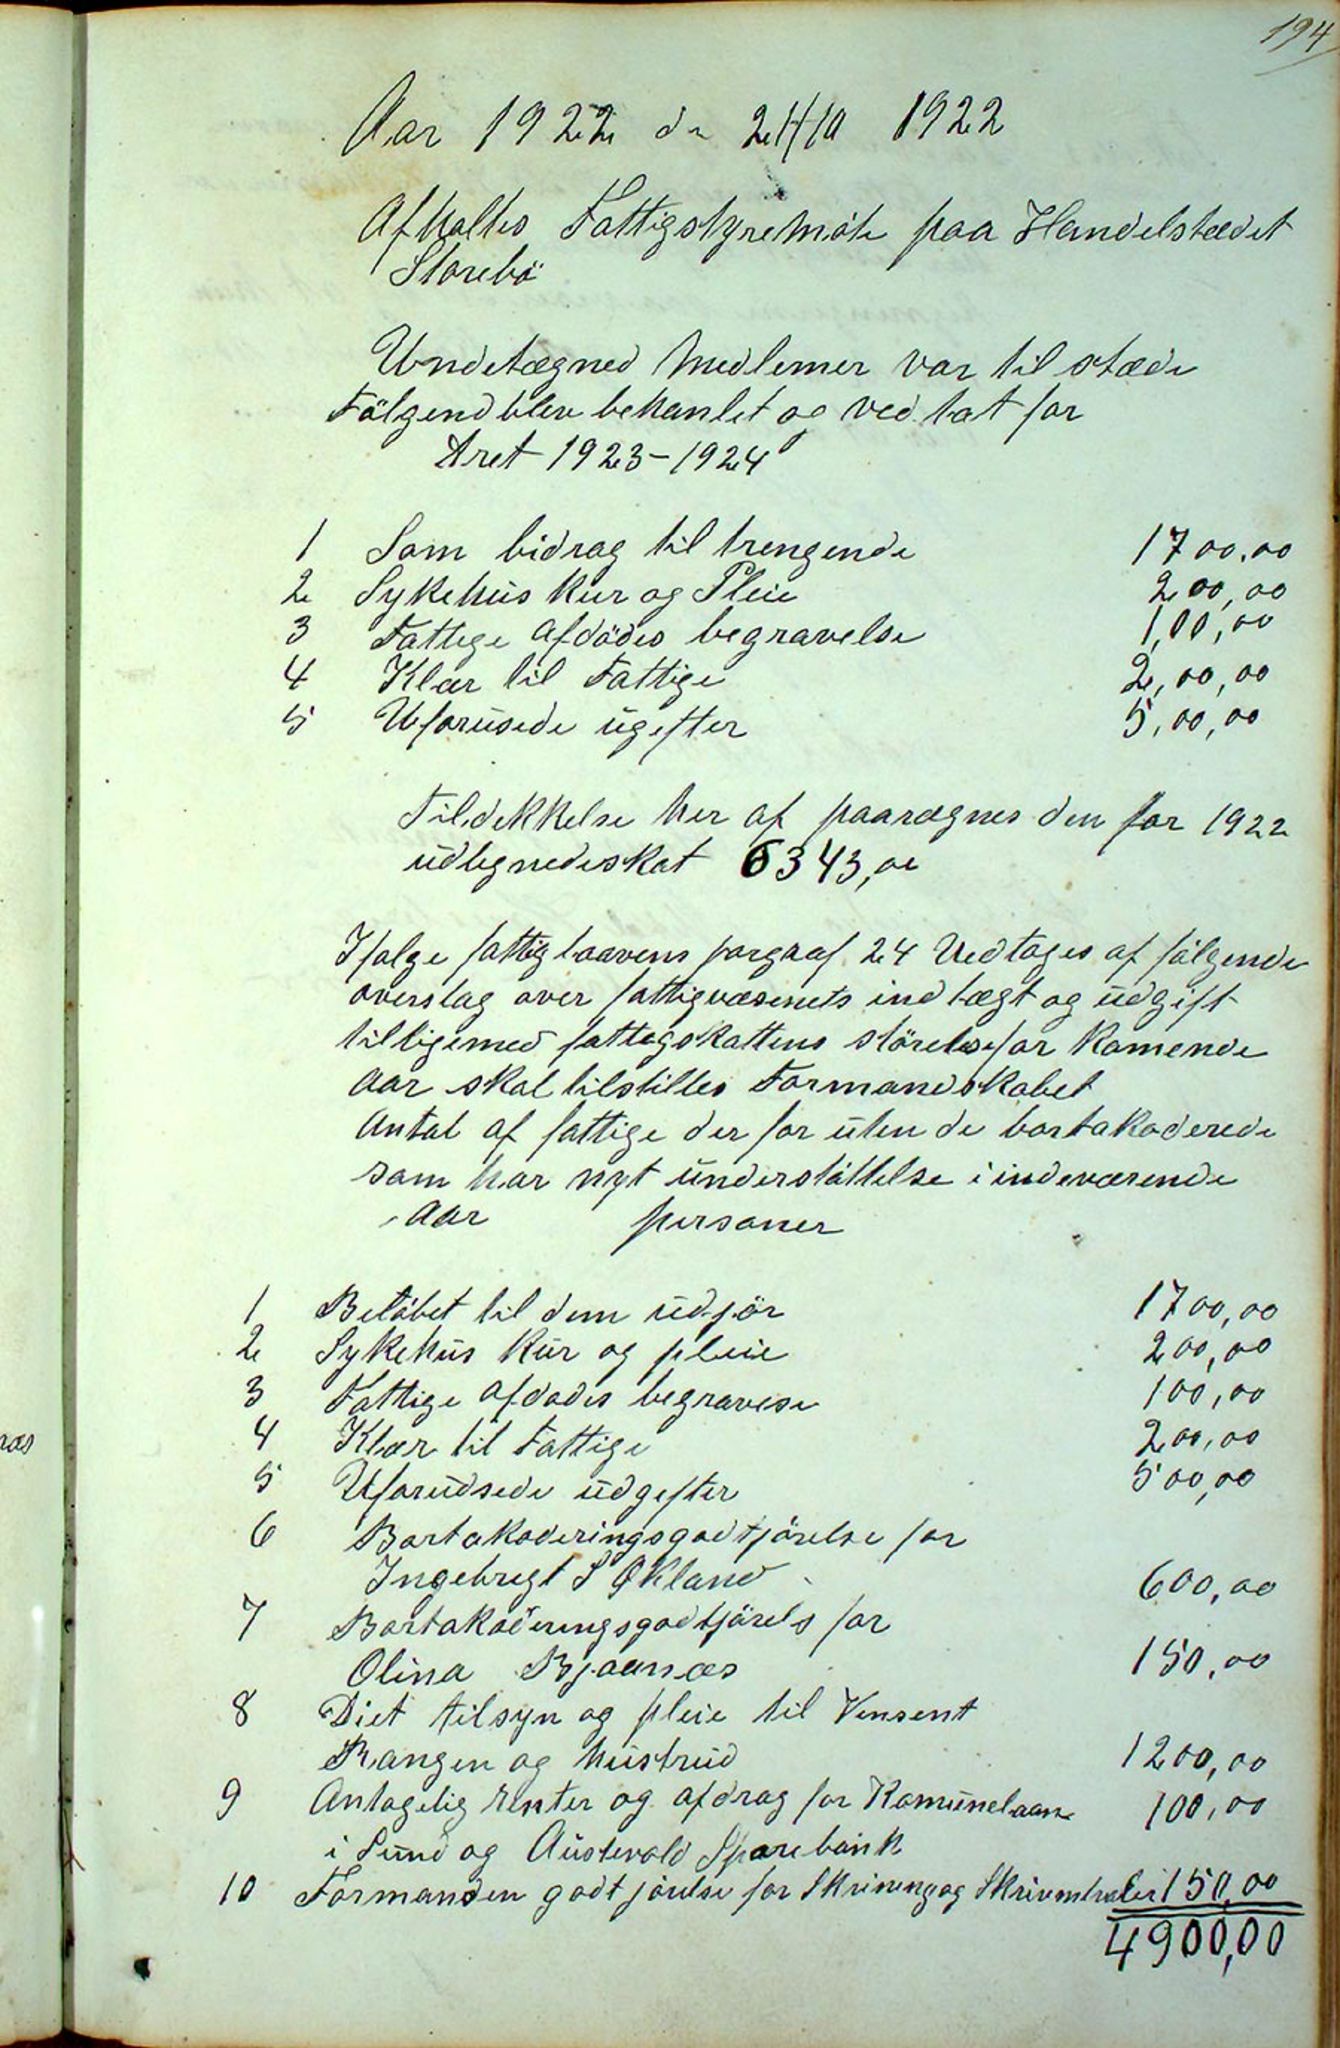 194
Aar 1922 dn 24/10 1922
Afholtes Fattigstyremöte paa Handelstædet
Storebö
Undetægned Medlemer var til stæde
Fölgend blev behanlet og ved tat for
Aret 1923-1924
1 Som bidrag til trengende 1700.00
2 Sykehus kur og Pleie 200,00
3 Fattige afdödes begravelse 1,00,00
4 Klær til Fattige 2,00,00
5 Uforusede ugefter 5,00,00
Tildekkelse her af paarægnes den for 1922
udlignedeskat 6343,00
Ifølge fattiglaavens pargraf 24 Vedtages af fölgende
overslag over fattigvæsenets indtægt og udgift
tilligemed fattegskattens störelse for Komende
Aar skal tilstilles Formandskabet
Antal af fattige der for uten de bortakoderede
som har nyt understöttelse i indeværende
Aar personer
1 Belöbet til dem udjör 1700,00
2 Sykehus Kur og pleie 200,00
3 Fattige afdødes begravese 100,00
4 Klær til Fattige 200,00
5 Uforudsede udgefter 500,00
6 Bortakoderingsgodtjörelse for
Ingebregt S Økland 600,00
7 Bortakoderingsgodtjörels for
Olina Bjaanæs 150,00
8 Diet tilsyn og pleie til Vensent
Rangen og hustrud 1200,00
9 Antagelig renter og afdrag for Komunelaan 100,00
i Sund og Austevold Sparebank
10 Formanden godtjörelse for Skrivning og 150,00
4900,00